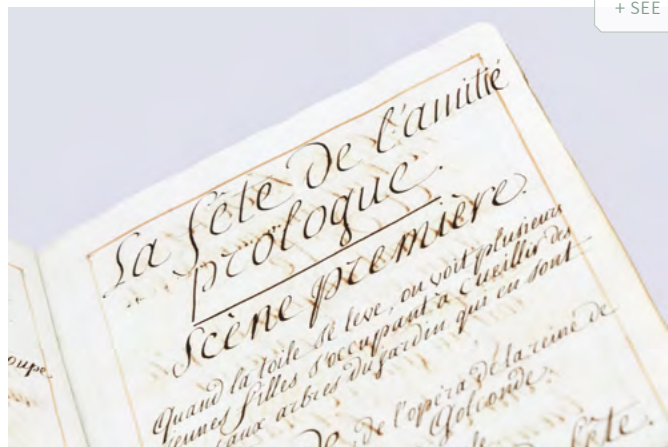 + SEE
La fête de l'amitié
prologue.
Scène première.
Quand la toile se leve, on voit plusieurs
jeunes filles s'occupant à cueillir des
aux arbres du jardin qui en sont
de l'opéra de la reine de
Golconde.
oupe
fête.